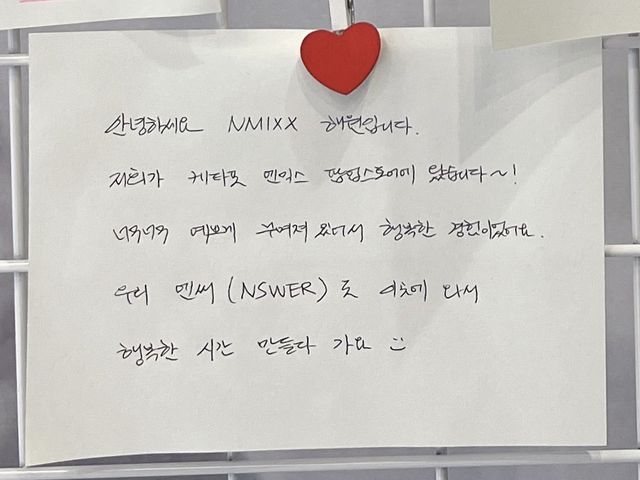 안녕하세요 NMIXX 해원입니다.
저희가 케타포 엔믹스 팝업스토어에 왔습니다~!
너무너무 예쁘게 꾸며져 있어서 행복한 경험이었어요.
우리 엔써 (NSWER) 도 이곳에 와서
행복한 시간 만들다 가요 :)